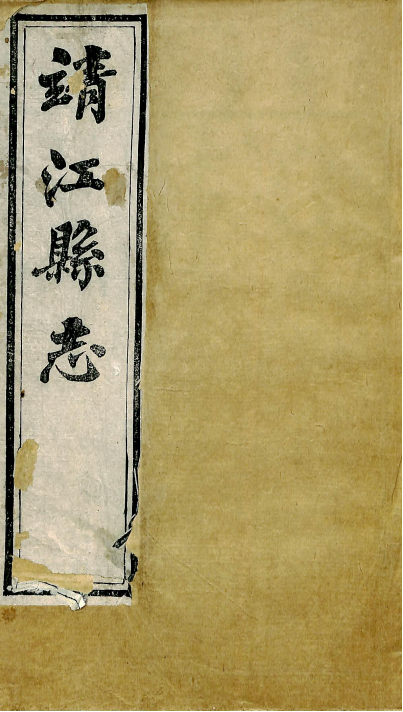 靖江縣志